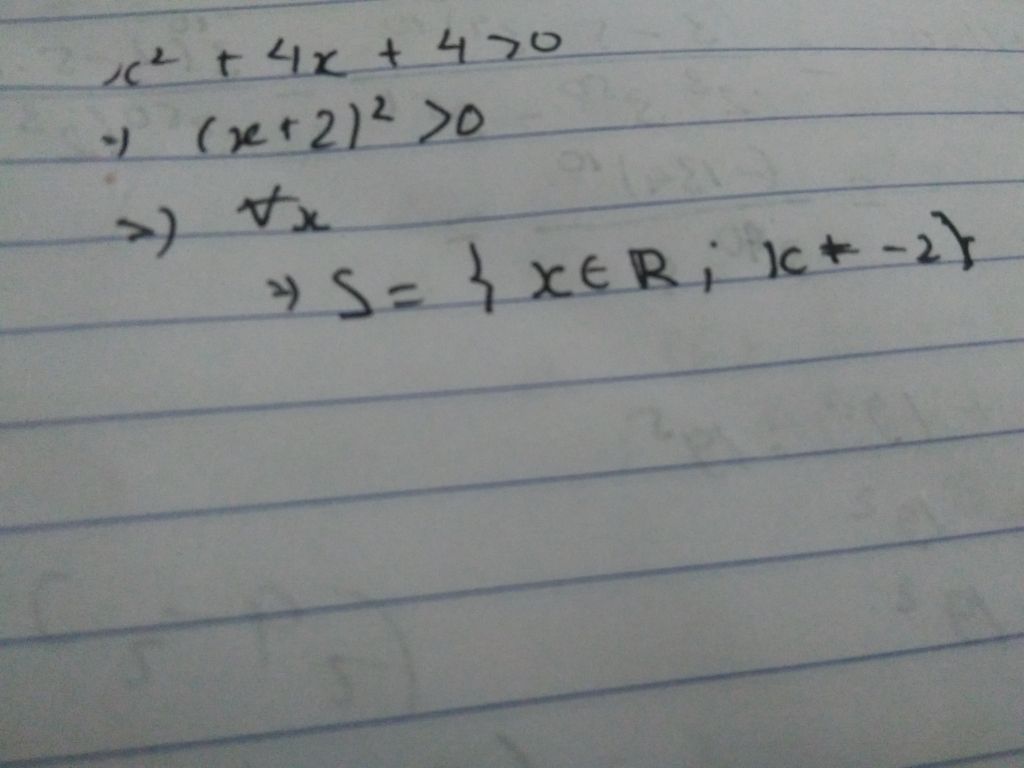 x² + 4x + 4 > 0
⇒ (x+2)² > 0
⇒ ∀x
⇒ S = { x ∈ ℝ ; x ≠ -2}